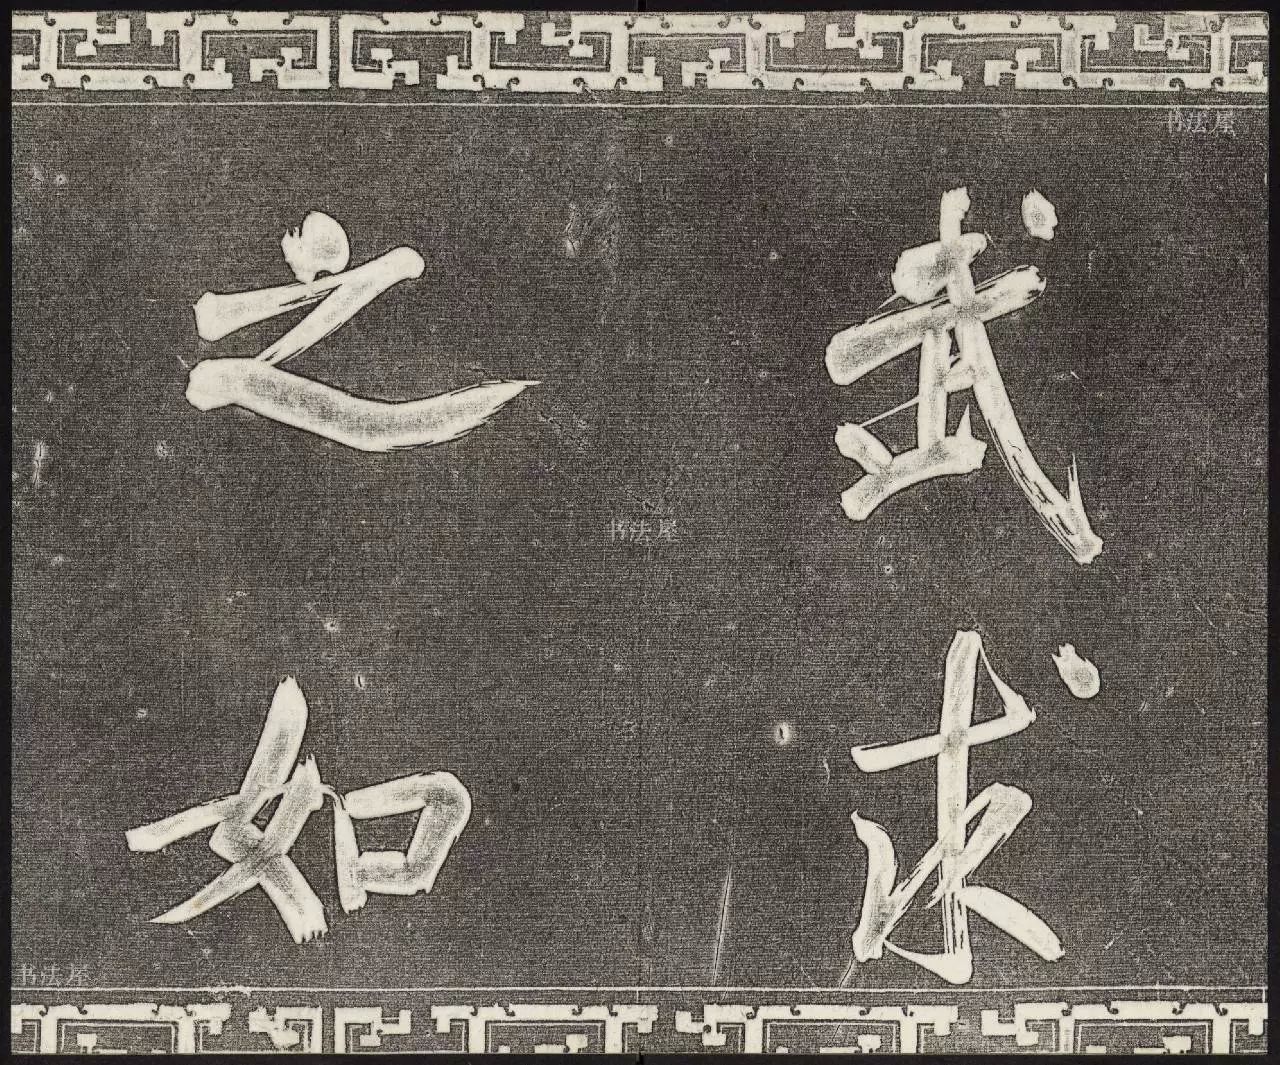 武求
之如
书法屋
书法屋
书法屋